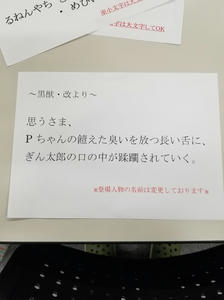 るねんやち
・めひ
※小文字は大文字
字は大文字でOK
～黒獣・改より～
思うさま、
Pちゃんの饐えた臭いを放つ長い舌に、
ぎん太郎の口の中が蹂躙されていく。
※登場人物の名前は変更しております※